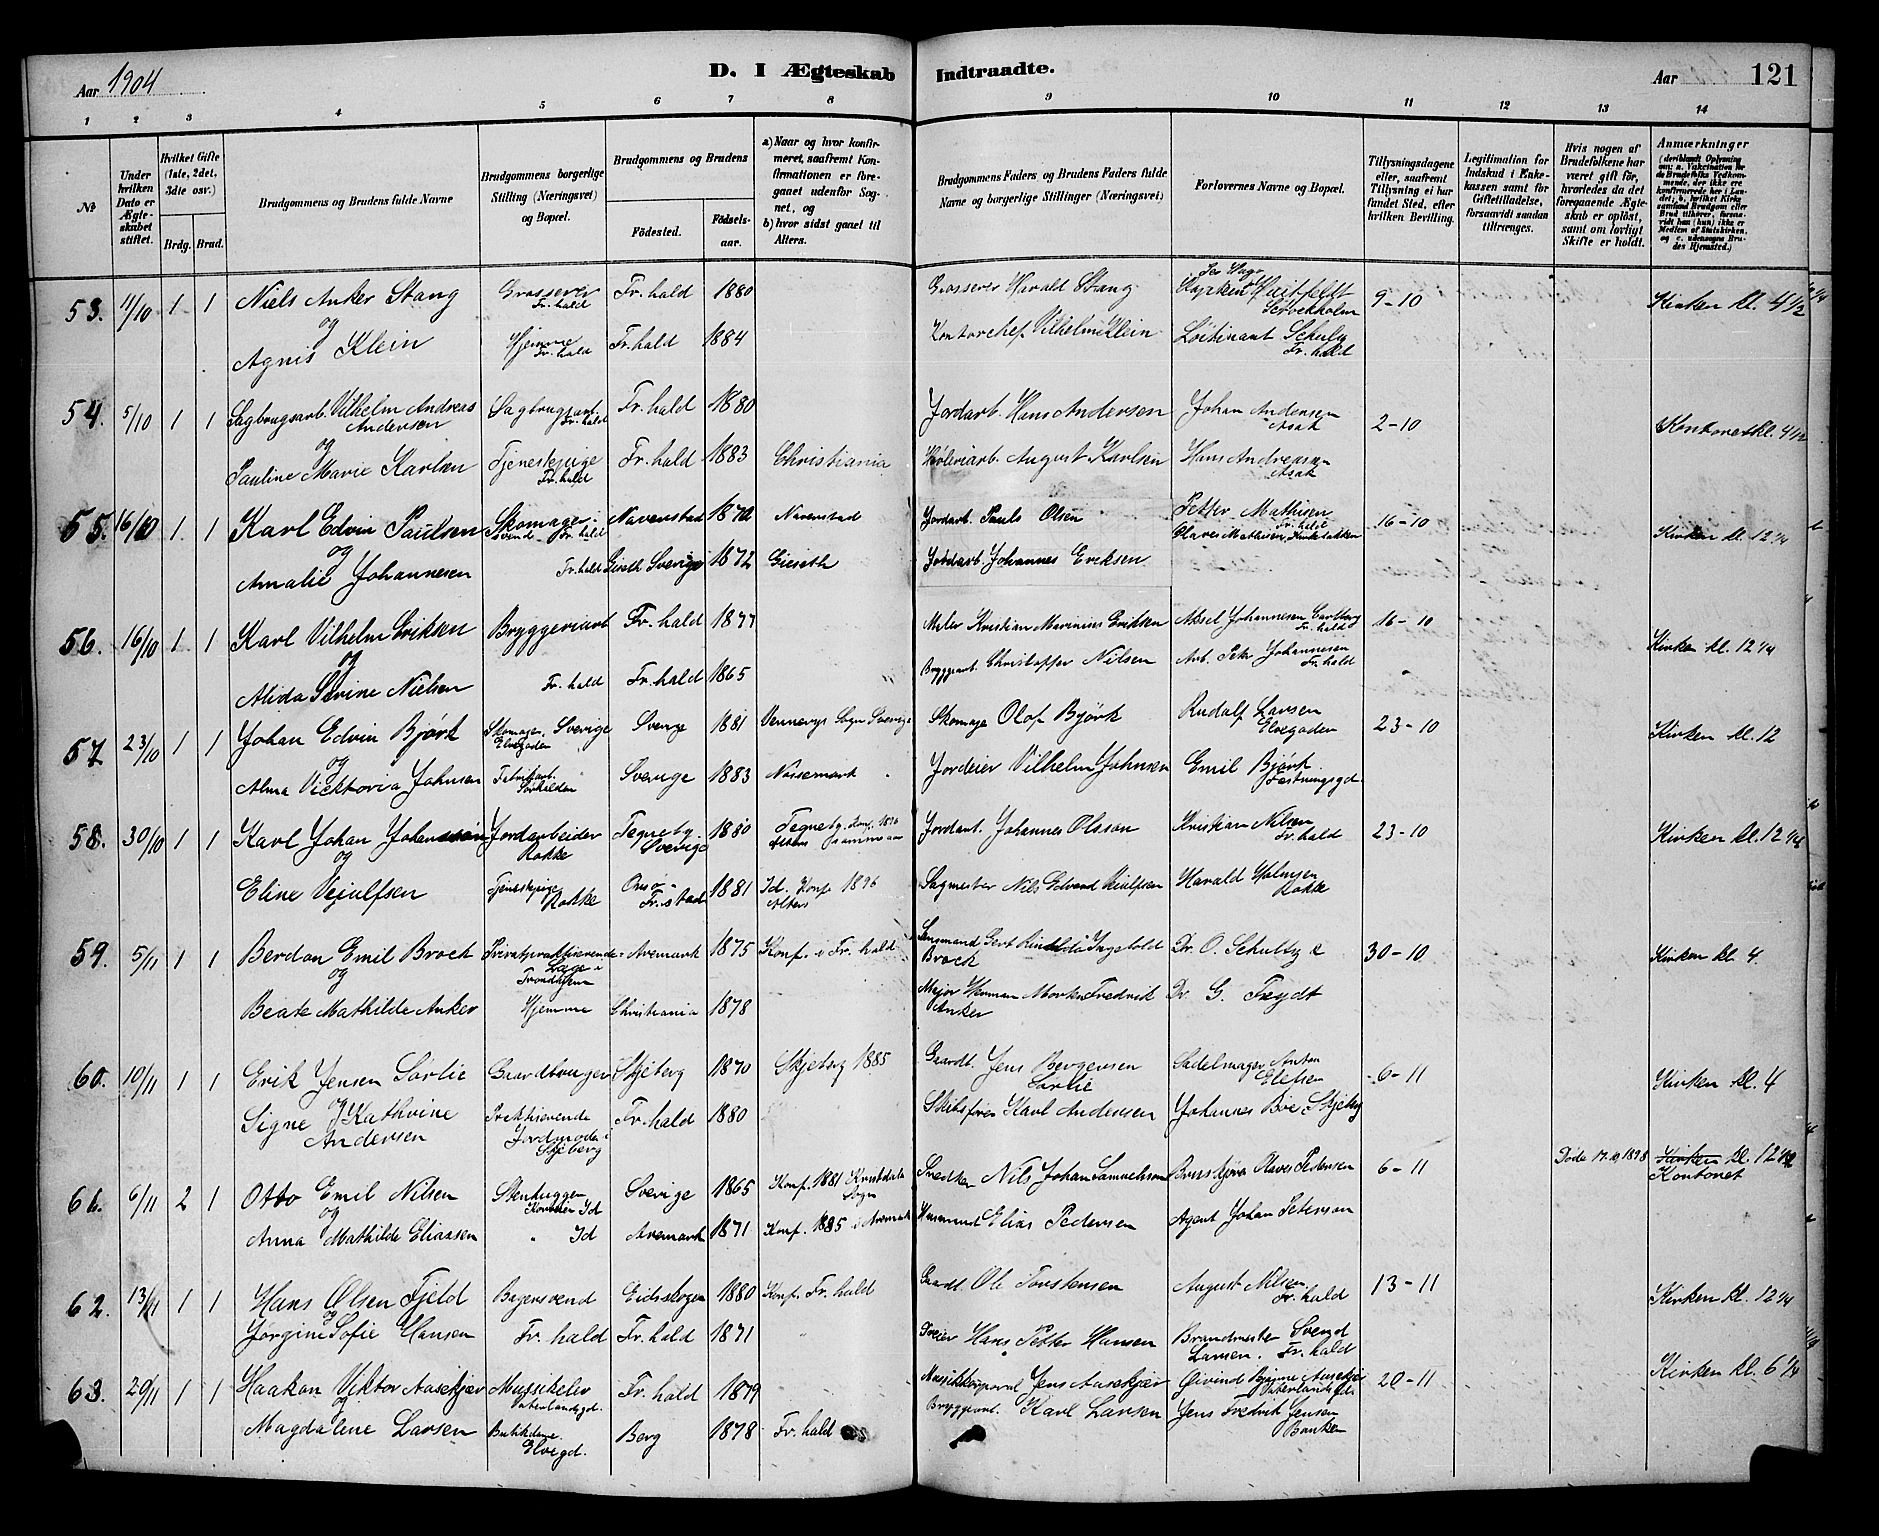 Aar 1904
D. I Ægteskab Indtraadte.
Aar 121
1 2 3 4 5 6 7 8 9 10 11 12 13 14
№
Under hvilken Dato er Ægteskabet stiftet.
Hvilket Gifte (1ste, 2det, 3die osv.)
Brdg. Brud.
Brudgommens og Brudens fulde Navne
Brudgommens borgerlige Stilling (Næringsvei) og Bopæl.
Brudgommens og Brudens
Födested.
Födselsaar.
a) Naar og hvor konfirmeret, saafremt Konfirmationen er foregaaet udenfor Sognet, og
b) hvor sidst gaaet til Alters.
Brudgommens Faders og Brudens Faders fulde Navne og borgerlige Stillinger (Næringsvei)
Forlovernes Navne og Bopæl.
Tillysningsdagene eller, saafremt Tillysning ei har fundet Sted, efter hvilken Bevilling.
Legitimation for Indskud i Enkekassen samt for Giftetilladelse, forsaavidt saadan tiltrænges.
Hvis nogen af Brudefolkene har været gift för, hvorledes da det foregaaende Ægteskab er oplöst, samt om lovligt Skifte er holdt.
Anmærkninger
53. 11/10 1 1 Niels Anker Stang Grosserer Fr.hald Fr. hald 1880 Grosserer Harald Stang Huitfeldt 9-10 Kirken kl. 4 1/2
og
Agnis Klein Hjemme Fr. hald Fr. hald 1884 Kontorchef Vilhelm Klein Löitinant Schulz Fr. hald
54. 5/10 1 1 Sagbrugsarb. Vilhelm Andreas Andersen Sagbrugsarb. Fr. hald Fr. hald 1880 Jordarb. Hans Andersen Johan Andersen Asak 2-10 Kontoret kl. 4 1/2
og
Pauline Marie Karlsen Tjenestepige Fr. hald Fr. hald 1883 Christiania August Karlsen Hans Andersen Asak
55. 16/10 1 1 Karl Edvin Paulsen Skomagersvend Fr. hald Navenstad 1872 Navenstad Jordarb. Pauls Olsen Petter Mathisen Fr. hald 16-10 Kirken kl. 12 1/4
og Olaves Mathisen,
Amalie Johannesen Fr. hald Sverige 1872 Jordarb. Johannes Eriksen
56. 16/10 1 1 Karl Vilhelm Eriksen Bryggeriarb Fr. hald 1877 Maler Kristian Marinius Eriksen Aksel Johannesen Fr. hald 16-10 Kirken kl. 12 1/4
og
Alida Sevine Nielsen Fr. hald Fr. hald 1865 Bryggarb. Christoffer Nilsen Arb. Petr Johannesen Fr. hald
57 23/10 1 1 Johan Edvin Bjørk Skomager. Sverige Elvegaden Sverige 1881 Sogn Sverige Skomager Olof Bjørk Rudolf Larsen Elvegaden 23-10 Kirken kl. 12
og
Alma Vicktoria Johnsen Sverige 1883 Nössemark Jordeier Vilhelm Johnsen Emil Bjørk Festningsgd.
58. 30/10 1 1 Karl Johan Johansson Jordarbeider Rokke Tegneby. Sverige 1880 Tegneby. Konf. 1896 Jordarb. Johannes Olsson Kristian Nilsen Fr. hald 23-10 Kirken kl. 12 1/4
og
Eline Vejulfsen Tjenestepige Rokke Onsø Fr. stad 1881 Id. Konf 1896 Alters Sagmester Nils Edvard Harald Halmsen Rokke
59. 5/11 1 1 Berdan Emil Brock Privatpraktiserende Læge i Trondhjem Aremark 1875 Konf. i Fr. hald Lensmand Gert Ingebold Brock Dr. O. Schultz 30-10 Kirken kl. 4.
og
Beate Mathilde Anker Hjemme Christiania 1878 Major Herman Fredrik Anker Dr. G. Feydt
60. 10/11 1 1 Erik Jensen Sørlie Gaardbruger Skjeberg 1870 Skjeberg 1885 Gaardb. Jens Bergersen Sørlie Sadelmager Anton Elefsen 6-11 Kirken kl. 4
og
Signe Kathrine Andersen Praktiserende Jordmoder i Skjeberg Fr. hald 1880 Skibsfører Karl Andersen Johannes Boe, Skjebg
61. 6/11 2 1 Otto Emil Nilsen Stenhugger Id Sverige 1865 Konf. 1881 Sogn Snedker Nils Johan Samuelsson Olaves Pedersen 6-11 Döde 17.10.1898 Kirken kl. 12 1/2 Kontoret
og
Anna Mathilde Eliassen " Id Aremark 1871 Konf. 1885 i Aremark Husmand Elias Pedersen Agent Johan Peterson
62. 13/11 1 1 Hans Olsen Fjeld Bagersvend Eidskogen 1880 Konf. Fr. hald Gaardb. Ole Torstensen August Nilsen Fr. hald 13-11 Kirken kl. 12 1/4
og
Jørgine Sofie Hansen Fr. hald Fr. hald 1871 " Hans Petter Hansen Brandmester Svend Larsen. Fr. hald
63. 20/11 1 1 Haakon Viktor Aasekjær Musikeler Vaterlandsgd. Fr. hald 1879 Jens Aasekjær Øivind Aasekjær 20-11 Kirken kl. 6 1/4
og
Magdalene Larsen Elvegd. Berg 1878 Fr. hald Bryggarb. Karl Larsen Jens Fredrik Jensen Banken